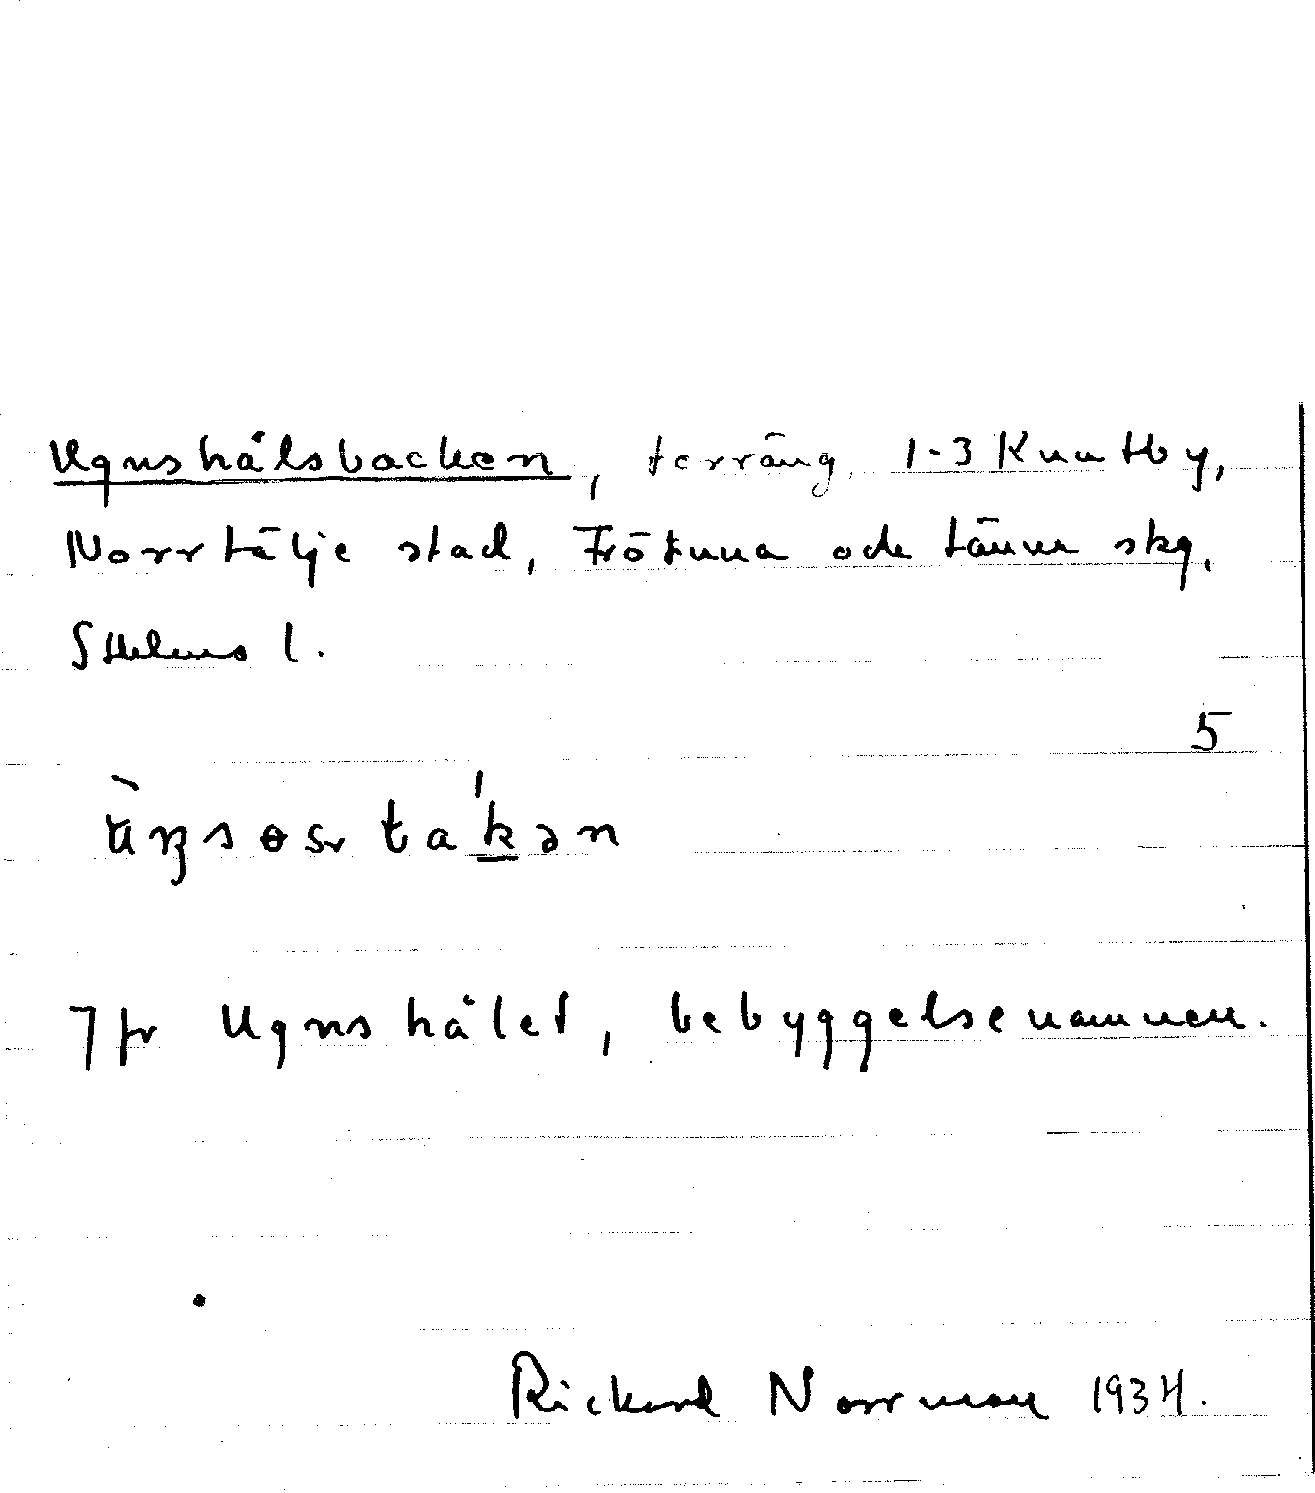 Ugnshålsbacken, terräng, 1-3 Knutby,
Norrtälje stad, Frötuna och Länna skg,
Sthlms l.
5
Jfr Ugnshålet, bebyggelsenamnen.
Rickard Norrman 1934.